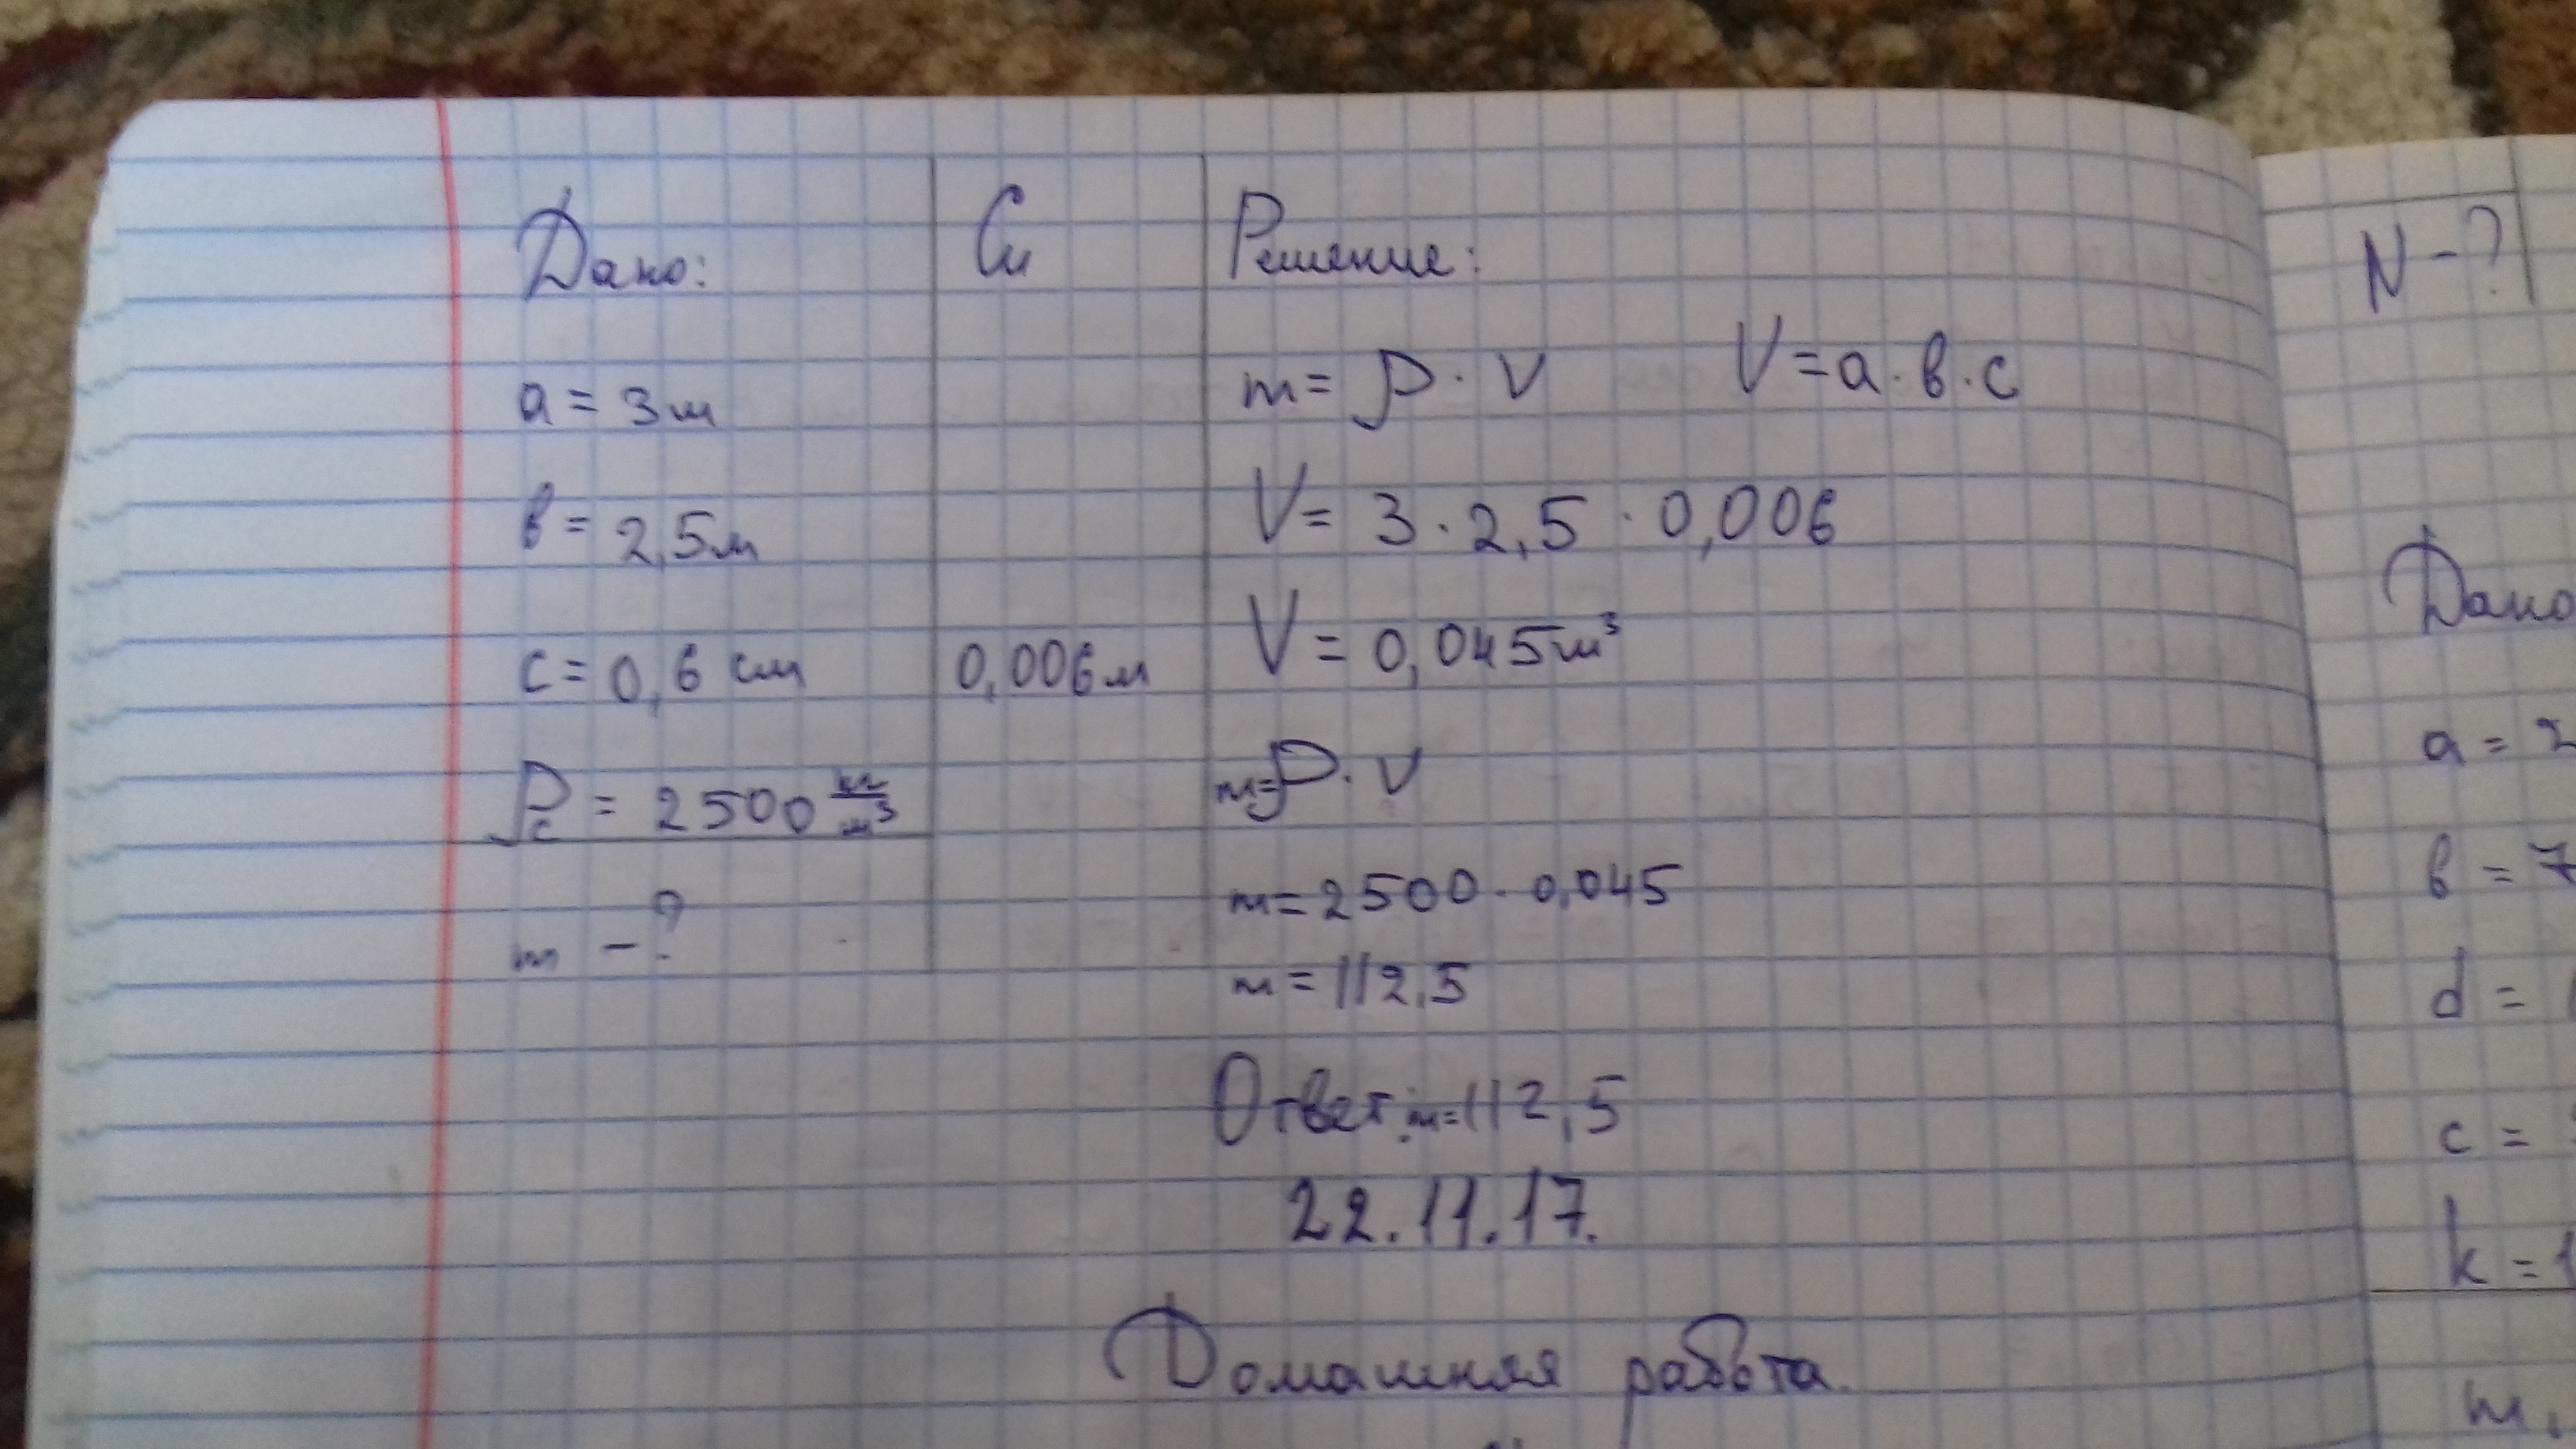 Дано:
a = 3м
в = 2,5м
c = 0,6 см
ρc = 2500 кг/м³
m - ?
Си
0,006м
Решение:
m = ρ · V V = a · в · c
V = 3 · 2,5 · 0,006
V = 0,045м³
m = ρ · V
m = 2500 · 0,045
m = 112,5
Ответ: m = 112,5
22.11.17.
Домашняя работа.
N - ?
Дано
a = 2
в = 7
d =
c =
k = 1
m